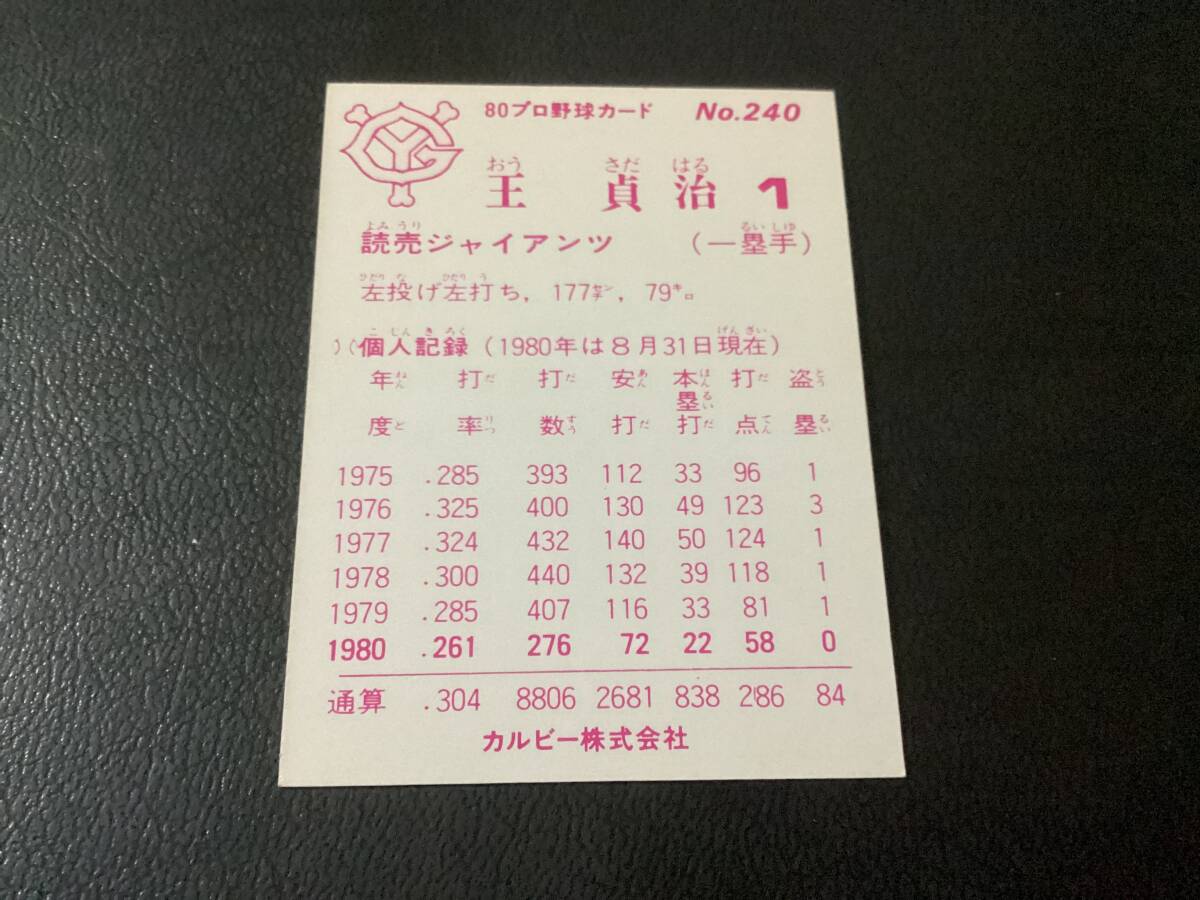 80プロ野球カード No.240
おう さだ はる
王 貞 治 1
よみ うり るい しゅ
読売ジャイアンツ (一塁手)
ひだり な ひだり う
左投げ左打ち, 177センチ, 79キロ
こ じん き ろく げん ざい
個人記録 (1980年は8月31日現在)
年ねん 打だ 打だ 安あん 本ほん塁るい 打だ 盗とう
度ど 率りつ 数すう 打だ 打だ 点てん 塁るい
1975 .285 393 112 33 96 1
1976 .325 400 130 49 123 3
1977 .324 432 140 50 124 1
1978 .300 440 132 39 118 1
1979 .285 407 116 33 81 1
1980 .261 276 72 22 58 0
通算 .304 8806 2681 838 286 84
カルビー株式会社